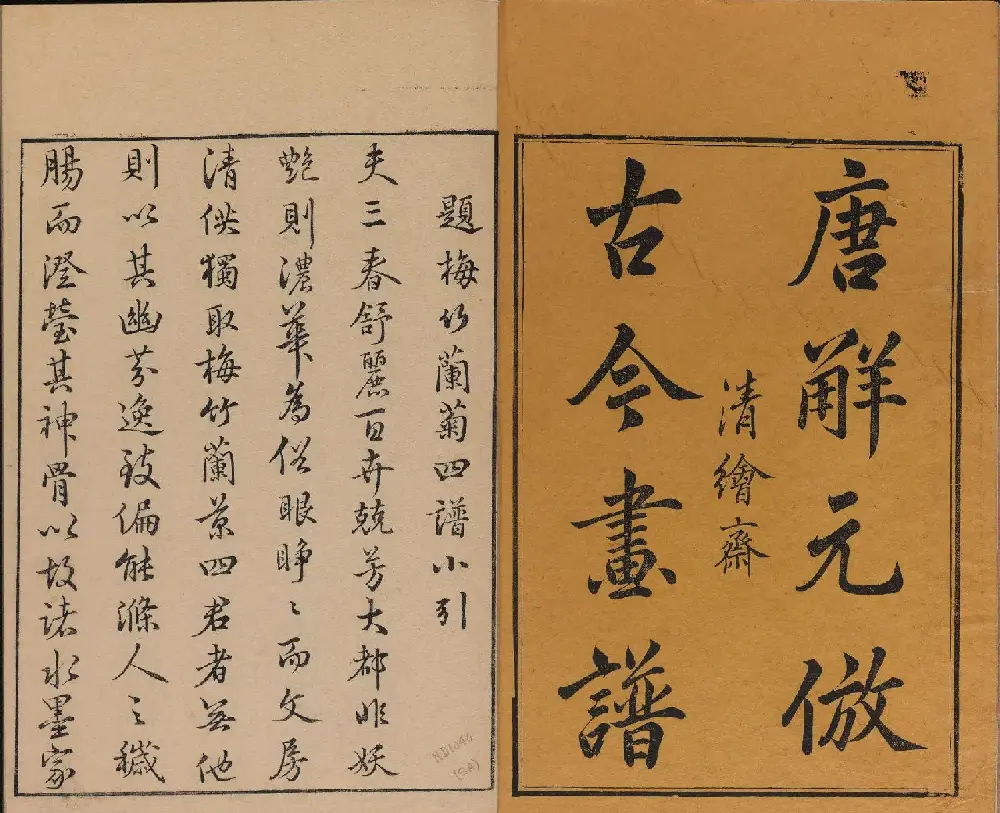 唐觧元倣
清繪齋
古今畫譜
題梅竹蘭菊四譜小引
夫三春舒麗百卉兢芳大都非妖
艶則濃華為俗眼睜〻而文房
清供獨取梅竹蘭菊四君者無他
則以其幽芬逸致偏能滌人之穢
腸而澄瑩其神骨以故諸水墨家